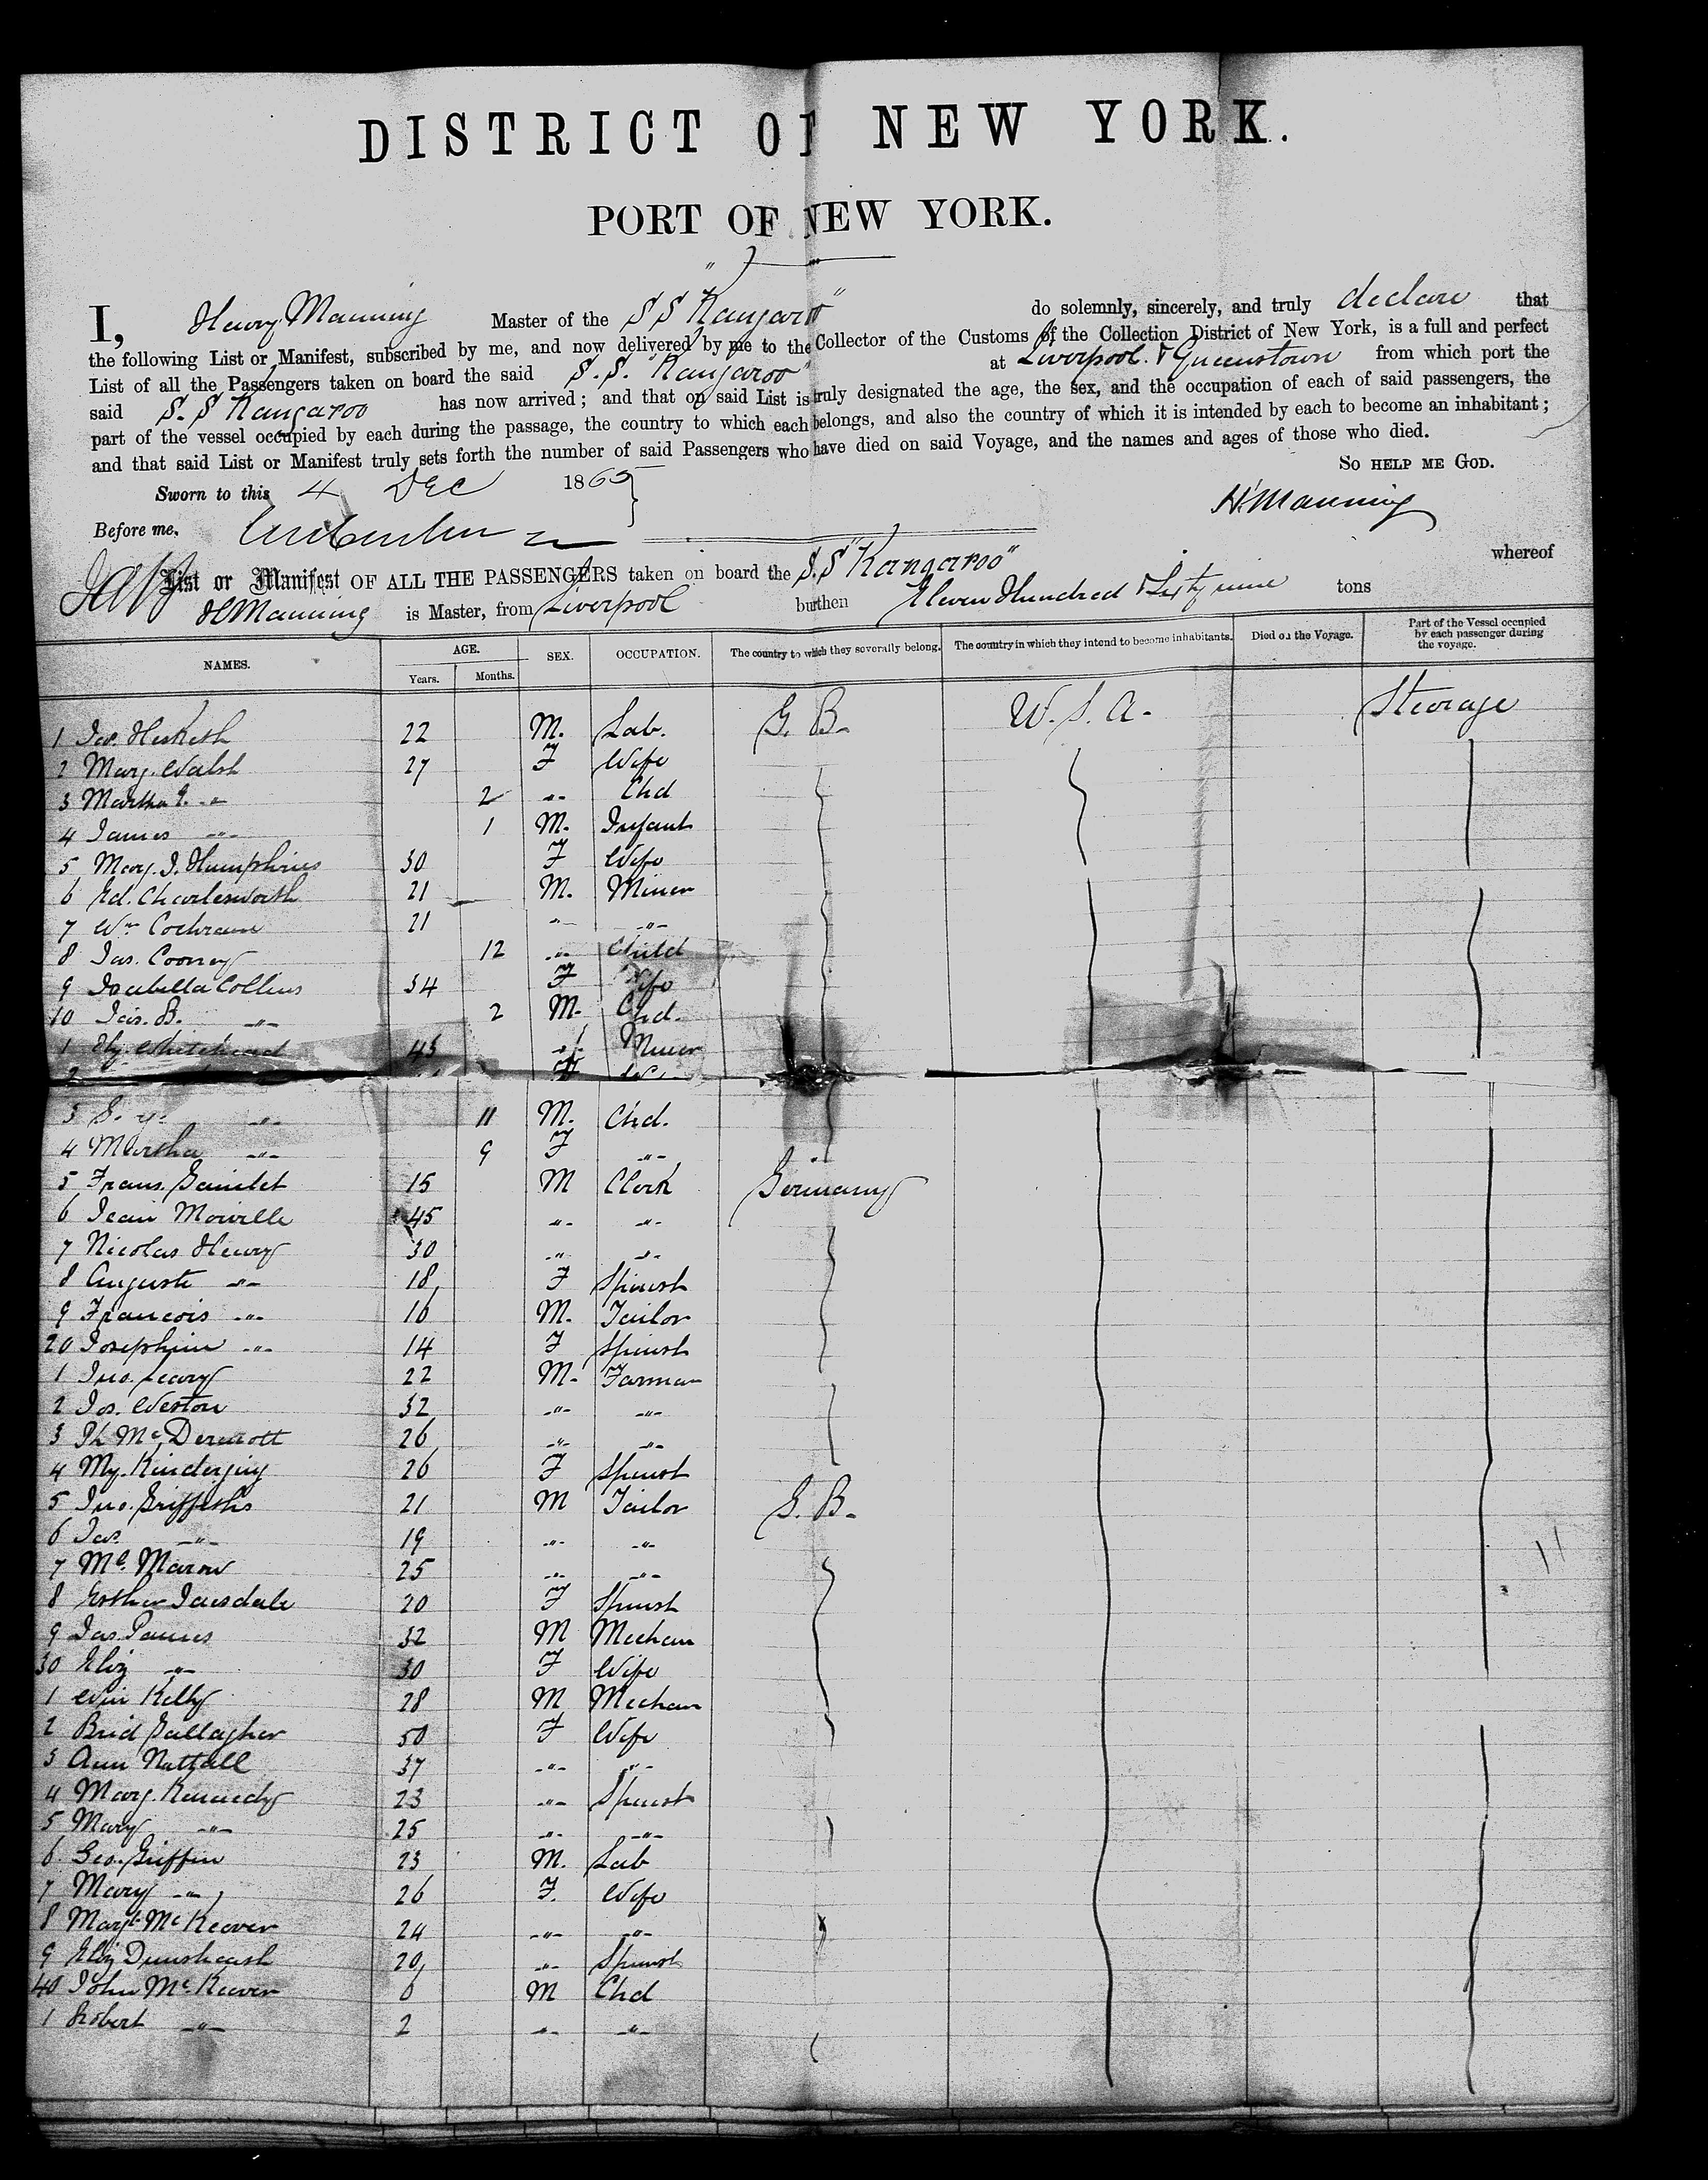 DISTRICT OF NEW YORK.
PORT OF NEW YORK.
I, Henry Manning Master of the SS Kangaroo" do solemnly, sincerely, and truly declare that
the following List or Manifest, subscribed by me, and now delivered by me to the Collector of the Customs of the Collection District of New York, is a full and perfect
List of all the Passengers taken on board the said S.S. "Kangaroo" at Liverpool & Queenstown from which port the
said S. S Kangaroo has now arrived; and that on said List is truly designated the age, the sex, and the occupation of each of said passengers, the
part of the vessel occupied by each during the passage, the country to which each belongs, and also the country of which it is intended by each to become an inhabitant;
and that said List or Manifest truly sets forth the number of said Passengers who have died on said Voyage, and the names and ages of those who died.
SO HELP ME GOD.
Sworn to this 4 Dec 1865
H. Manning
Before me,
List or Manifest OF ALL THE PASSENGERS taken on board the S.S "Kangaroo" whereof
H Manning is Master, from Liverpool burthen Eleven Hundred & Sixty nine tons
NAMES. AGE. Years. Months. SEX. OCCUPATION. The country to which they severally belong. The country in which they intend to become inhabitants. Died on the Voyage. Part of the Vessel occupied by each passenger during the voyage.
1 Jas. Hesketh 22 M. Lab. G. B. U. S. A. Steerage
2 Mary Walsh 27 F Wife
3 Martha -"- 2 -"- Chd
4 James -"- 1 M. Infant
5 Mary J. Humphries 30 F Wife
6 Ed. Charlesworth 21 M. Miner
7 Wm Cochrane 21 -"- -"-
8 Jas. Cooney 12 -"- Child
9 Isabella Collins 34 F Wife
10 Jas. B. -"- 2 M. Chd.
1 Ely. Whitehead 43 -"- Miner
2
3 S. -"- 11 M. Chd.
4 Martha -"- 9 F -"-
5 Frans. 15 M Clerk Germany
6 Jean 45 -"- -"-
7 Nicolas Henry 30 -"- -"-
8 Auguste -"- 18 F Spinst
9 Francois -"- 16 M. Tailor
20 Josephine -"- 14 F Spinst
1 Jno. Leary 22 M. Farmer
2 Jos. Weston 32 -"- -"-
3 Pk McDermott 26 -"- -"-
4 My. 26 F Spinst
5 Jno. Griffiths 21 M Tailor G. B.
6 Jas. -"- 19 -"- -"-
7 Ml. Maron 25 -"- -"-
8 Esther 20 F Spinst
9 Jas. 32 M Mechan
30 Eliz -"- 30 F Wife
1 Wm Kelly 28 M Mechan
2 Brid Gallagher 50 F Wife
3 Ann Nuttall 37 -"- -"-
4 Marg. Kennedy 23 -"- Spinst
5 Mary -"- 25 -"- -"-
6 Geo. Griffin 23 M. Lab
7 Mary -"- 26 F. Wife
8 Margt McKeever 24 -"- -"-
9 Eliz 20 -"- Spinst
40 John McKeever 6 M Chd
1 Robert -"- 2 -"- -"-